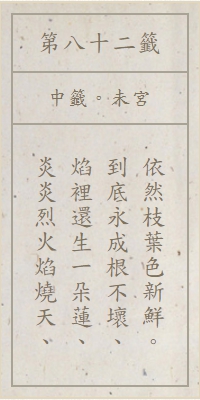 第八十二籤
中籤。未宮
炎炎烈火焰燒天、
焰裡還生一朵蓮、
到底永成根不壞、
依然枝葉色新鮮。